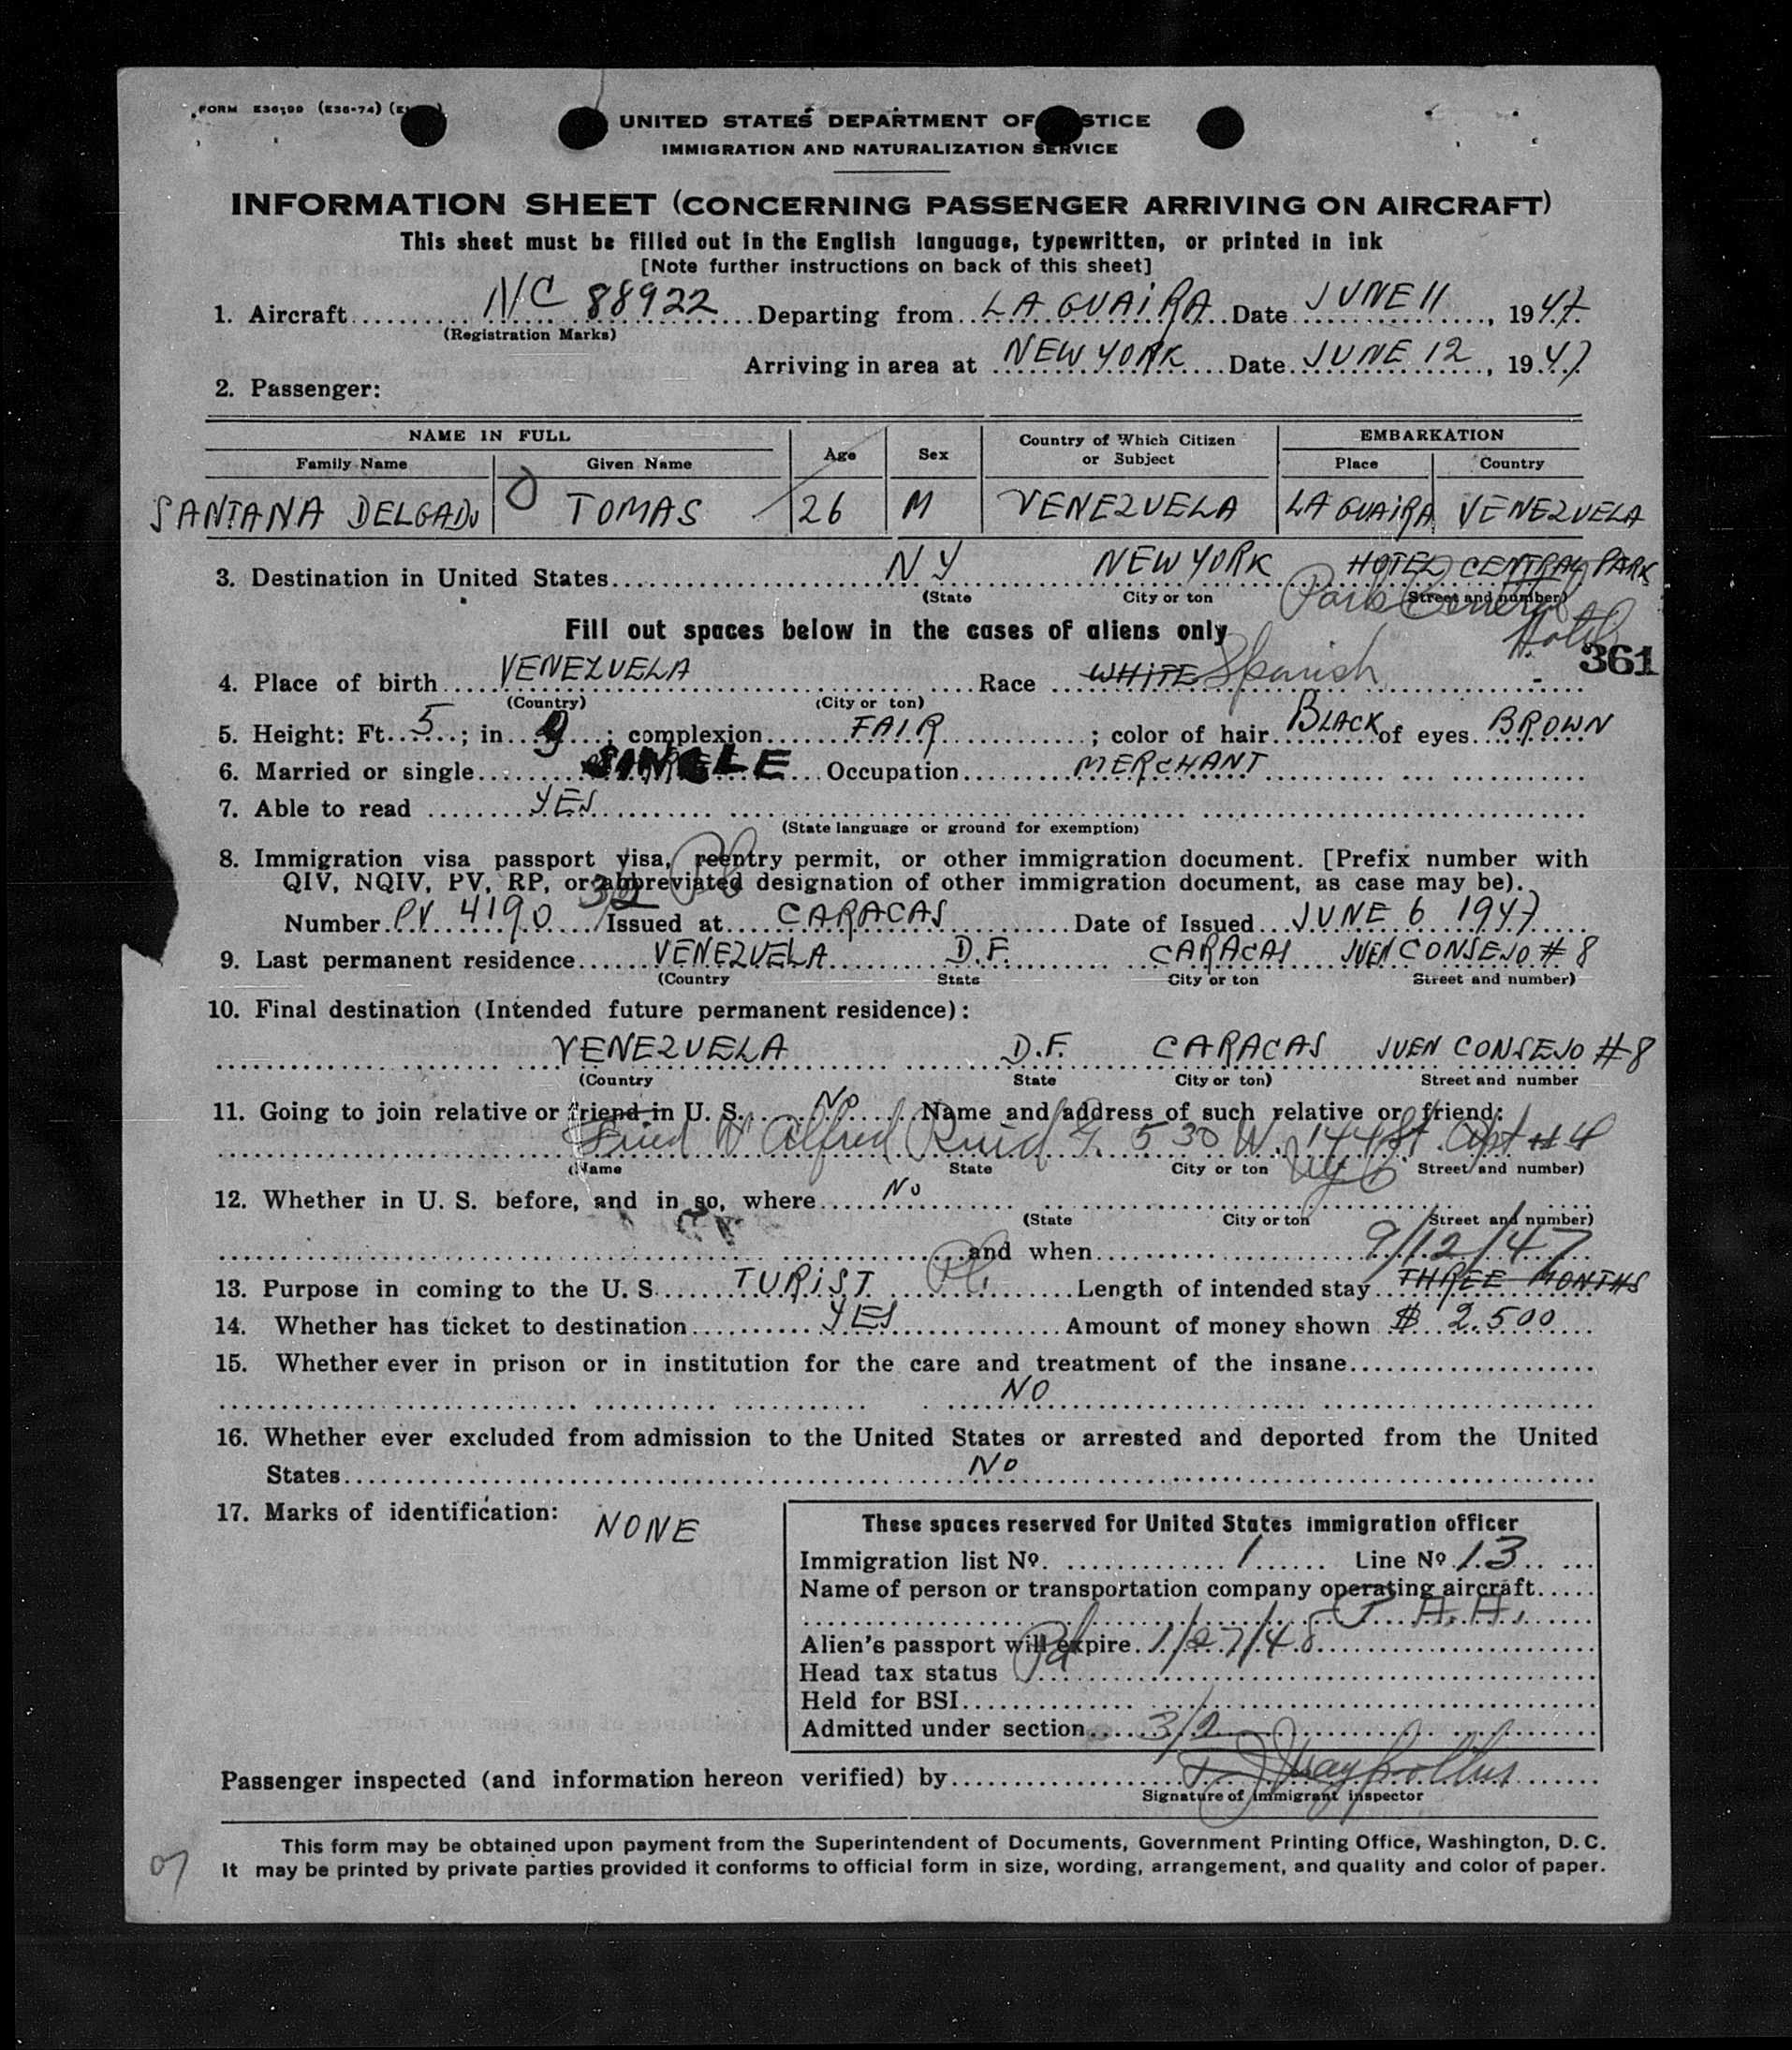 FORM E36-99 (E36-74)
UNITED STATES DEPARTMENT OF STICE
IMMIGRATION AND NATURALIZATION SERVICE
INFORMATION SHEET (CONCERNING PASSENGER ARRIVING ON AIRCRAFT)
This sheet must be filled out in the English language, typewritten, or printed in ink
[Note further instructions on back of this sheet]
1. Aircraft NC 88922 Departing from LA GUAIRA Date JUNE 11, 1947
(Registration Marks)
Arriving in area at NEW YORK Date JUNE 12, 1947
2. Passenger:
NAME IN FULL Age Sex Country of Which Citizen or Subject EMBARKATION
Family Name Given Name Place Country
SANTANA DELGADO TOMAS 26 M VENEZUELA LA GUAIRA VENEZUELA
3. Destination in United States NY NEW YORK HOTEL CENTRAL PARK
(State City or ton Street and number)
Park Central
Hotel
Fill out spaces below in the cases of aliens only
361
4. Place of birth VENEZUELA Race WHITE Spanish
(Country) (City or ton)
5. Height: Ft. 5; in. 9; complexion FAIR; color of hair BLACK of eyes BROWN
6. Married or single SINGLE Occupation MERCHANT
7. Able to read YES
(State language or ground for exemption)
8. Immigration visa passport visa, reentry permit, or other immigration document. [Prefix number with
QIV, NQIV, PV, RP, or abbreviated designation of other immigration document, as case may be).
3/2
Number PV 4190 Issued at CARACAS Date of Issued JUNE 6 1947
9. Last permanent residence VENEZUELA D.F. CARACAS JUEN CONSEJO # 8
(Country State City or ton Street and number)
10. Final destination (Intended future permanent residence):
VENEZUELA D.F. CARACAS JUEN CONSEJO # 8
(Country State City or ton) Street and number
11. Going to join relative or friend in U. S. No Name and address of such relative or friend:
Alfred 530 W. 144 St. Apt # 4
(Name State City or ton Street and number)
NYC
12. Whether in U. S. before, and in so, where No
(State City or ton Street and number)
and when 9/12/47
13. Purpose in coming to the U. S. TURIST Length of intended stay THREE MONTHS
14. Whether has ticket to destination YES Amount of money shown $ 2.500
15. Whether ever in prison or in institution for the care and treatment of the insane
NO
16. Whether ever excluded from admission to the United States or arrested and deported from the United
States No
17. Marks of identification: NONE
These spaces reserved for United States immigration officer
Immigration list No. 1 Line No 13
Name of person or transportation company operating aircraft
P.A.A.
Alien's passport will expire 1/27/48
Head tax status Pd
Held for BSI
Admitted under section 3/2
Passenger inspected (and information hereon verified) by
Signature of immigrant inspector
This form may be obtained upon payment from the Superintendent of Documents, Government Printing Office, Washington, D. C.
It may be printed by private parties provided it conforms to official form in size, wording, arrangement, and quality and color of paper.